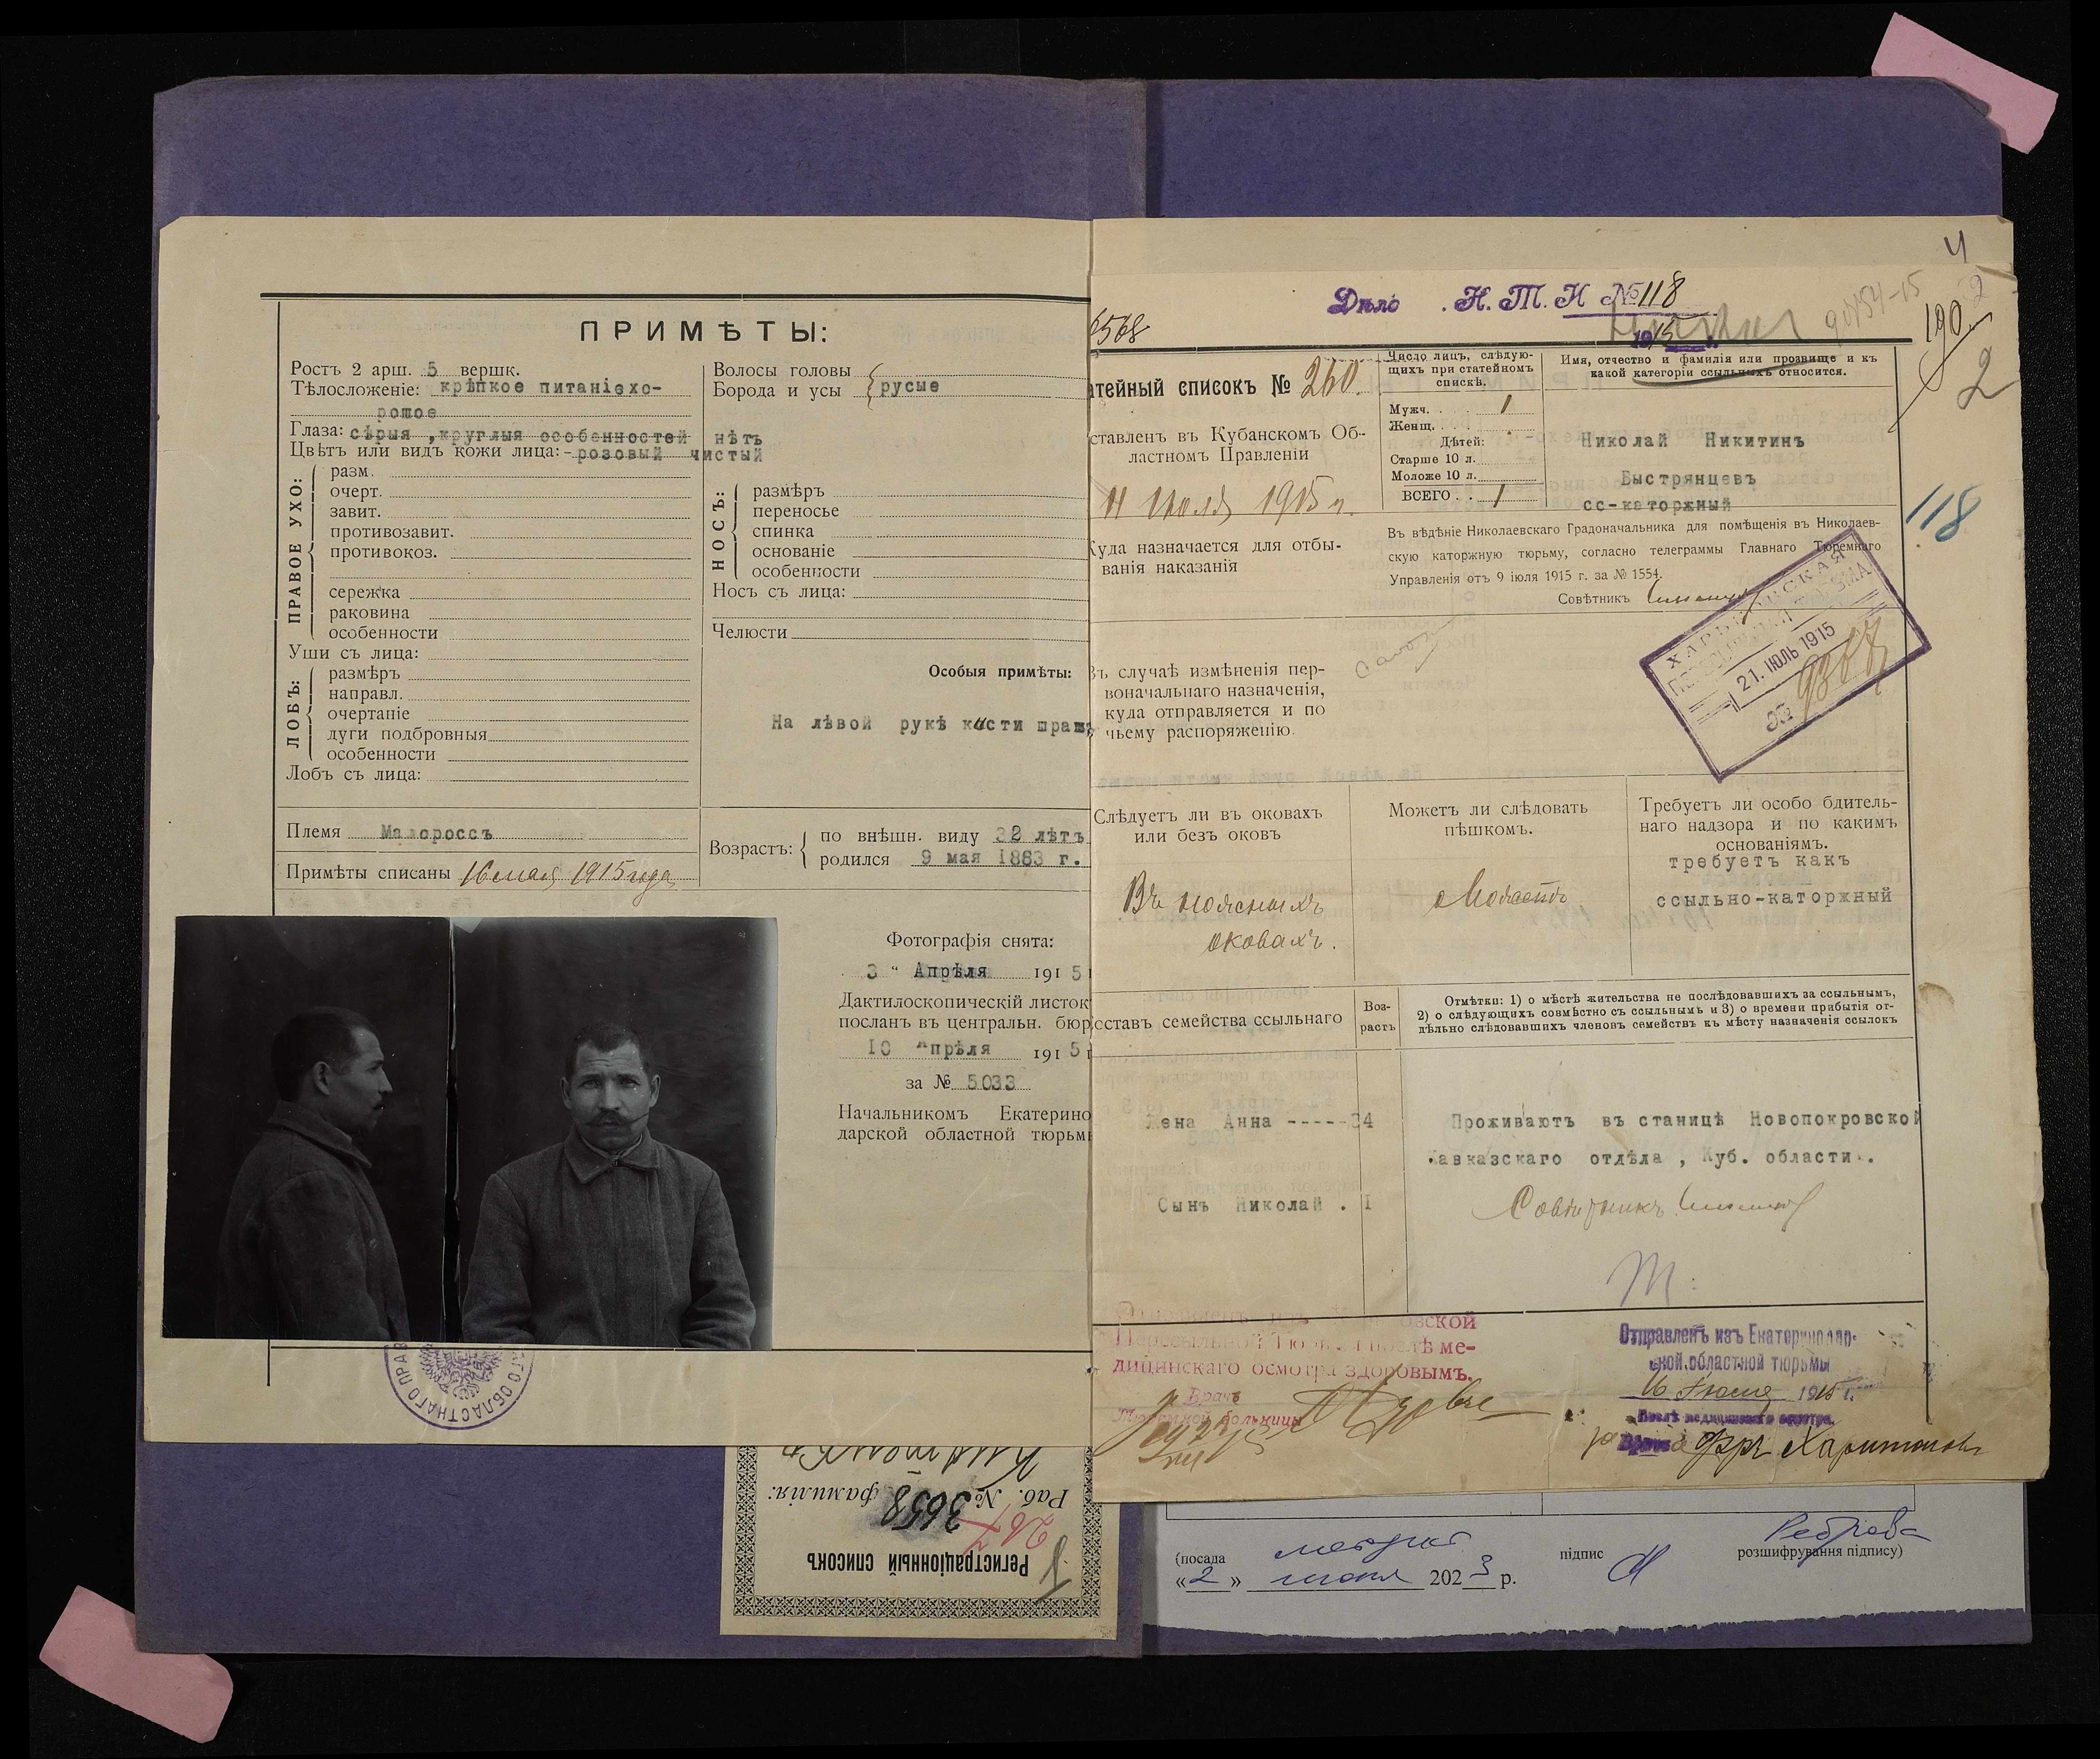 ПРИМѢТЫ:
Ростъ 2 арш. 5 вершк.
Тѣлосложеніе: крѣпкое питаніехо-
рошое
Глаза: сѣрыя ,круглыя особенностей нѣтъ
Цвѣтъ или видъ кожи лица:-розовый чистый
ПРАВОЕ УХО:
разм.
очерт.
завит.
противозавит.
противокоз.
сережка
раковина
особенности
Уши съ лица:
ЛОБЪ:
размѣръ
направл.
очертаніе
дуги подбровныя
особенности
Лобъ съ лица:
Волосы головы
Борода и усы русые
НОСЪ:
размѣръ
переносье
спинка
основаніе
особенности
Носъ съ лица:
Челюсти
Особыя примѣты:
На лѣвой рукѣ кисти шрамъ
Племя Малороссъ
Примѣты списаны 16 мая 1915 года
Возрастъ:
по внѣшн. виду 32 лѣтъ
родился 9 мая 1883 г.
Фотографія снята:
3 " Апрѣля 1915
Дактилоскопическій листок
посланъ въ центральн. бюр
10 Апрѣля 1915
за № 5033
Начальникомъ Екатерино
дарской областной тюрьм
Регистраціонный списокъ
Раб. № 3658 фамилія:
4
Дѣло . Н. Т. Н № 118
1915
6568
190
2
2
118
татейный списокъ № 260.
ставленъ въ Кубанскомъ Об-
ластномъ Правленіи
11 Июля 1915 г.
Число лицъ, слѣдую-
щихъ при статейном
спискѣ.
Мужч. . . . 1
Женщ. . . .
Дѣтей:
Старше 10 л.
Моложе 10 л.
ВСЕГО . . 1
Имя, отчество и фамилія или прозвище и къ
какой категоріи ссыльныхъ относится.
Николай Никитинъ
Быстрянцевъ
сс-каторжный
Куда назначается для отбы-
ванія наказанія
Въ вѣдѣніе Николаевскаго Градоначальника для помѣщенія въ Николаев-
скую каторжную тюрьму, согласно телеграммы Главнаго Тюремнаго
Управленія отъ 9 іюля 1915 г. за № 1554.
Совѣтникъ
ХАРЬКОВСКАЯ
21. ІЮЛЬ 1915
№
Въ случаѣ измѣненія пер-
воначальнаго назначенія,
куда отправляется и по
чьему распоряженію.
Слѣдуетъ ли въ оковахъ
или безъ оковъ
Въ ножныхъ
оковахъ.
Можетъ ли слѣдовать
пѣшкомъ.
Можетъ
Требуетъ ли особо бдитель-
наго надзора и по какимъ
основаніямъ.
требуетъ какъ
ссыльно-каторжный
оставъ семейства ссыльнаго
Воз-
растъ
Отмѣтки: 1) о мѣстѣ жительства не послѣдовавшихъ за ссыльнымъ,
2) о слѣдующихъ совмѣстно съ ссыльнымъ и 3) о времени прибытія от-
дѣльно слѣдовавшихъ членовъ семействъ къ мѣсту назначенія ссылокъ
Жена Анна -----34
Сынъ Николай . I
Проживаютъ въ станицѣ Новопокровской
Кавказскаго отдѣла , Куб. области .
Совѣтникъ
Пересыльной Тюрьмы послѣ ме-
дицинскаго осмотра здоровымъ.
Врачъ
Тюремной больницы
Отправленъ изъ Екатеринодар-
ской областной тюрьмы
16 Іюля 1915 г.
Послѣ медицинскаго осмотра.
за Врача фер Харитонов
(посада
підпис
Реброва
розшифрування підпису)
«2» 2023 р.